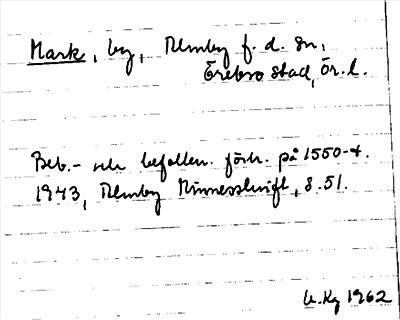 Mark, by, Almby f. d. sn,
Örebro stad, Ör. l.
Beb.- och befolkn. förh. på 1550-t.
1943, Almby Minnesskrift, s. 51.
1962